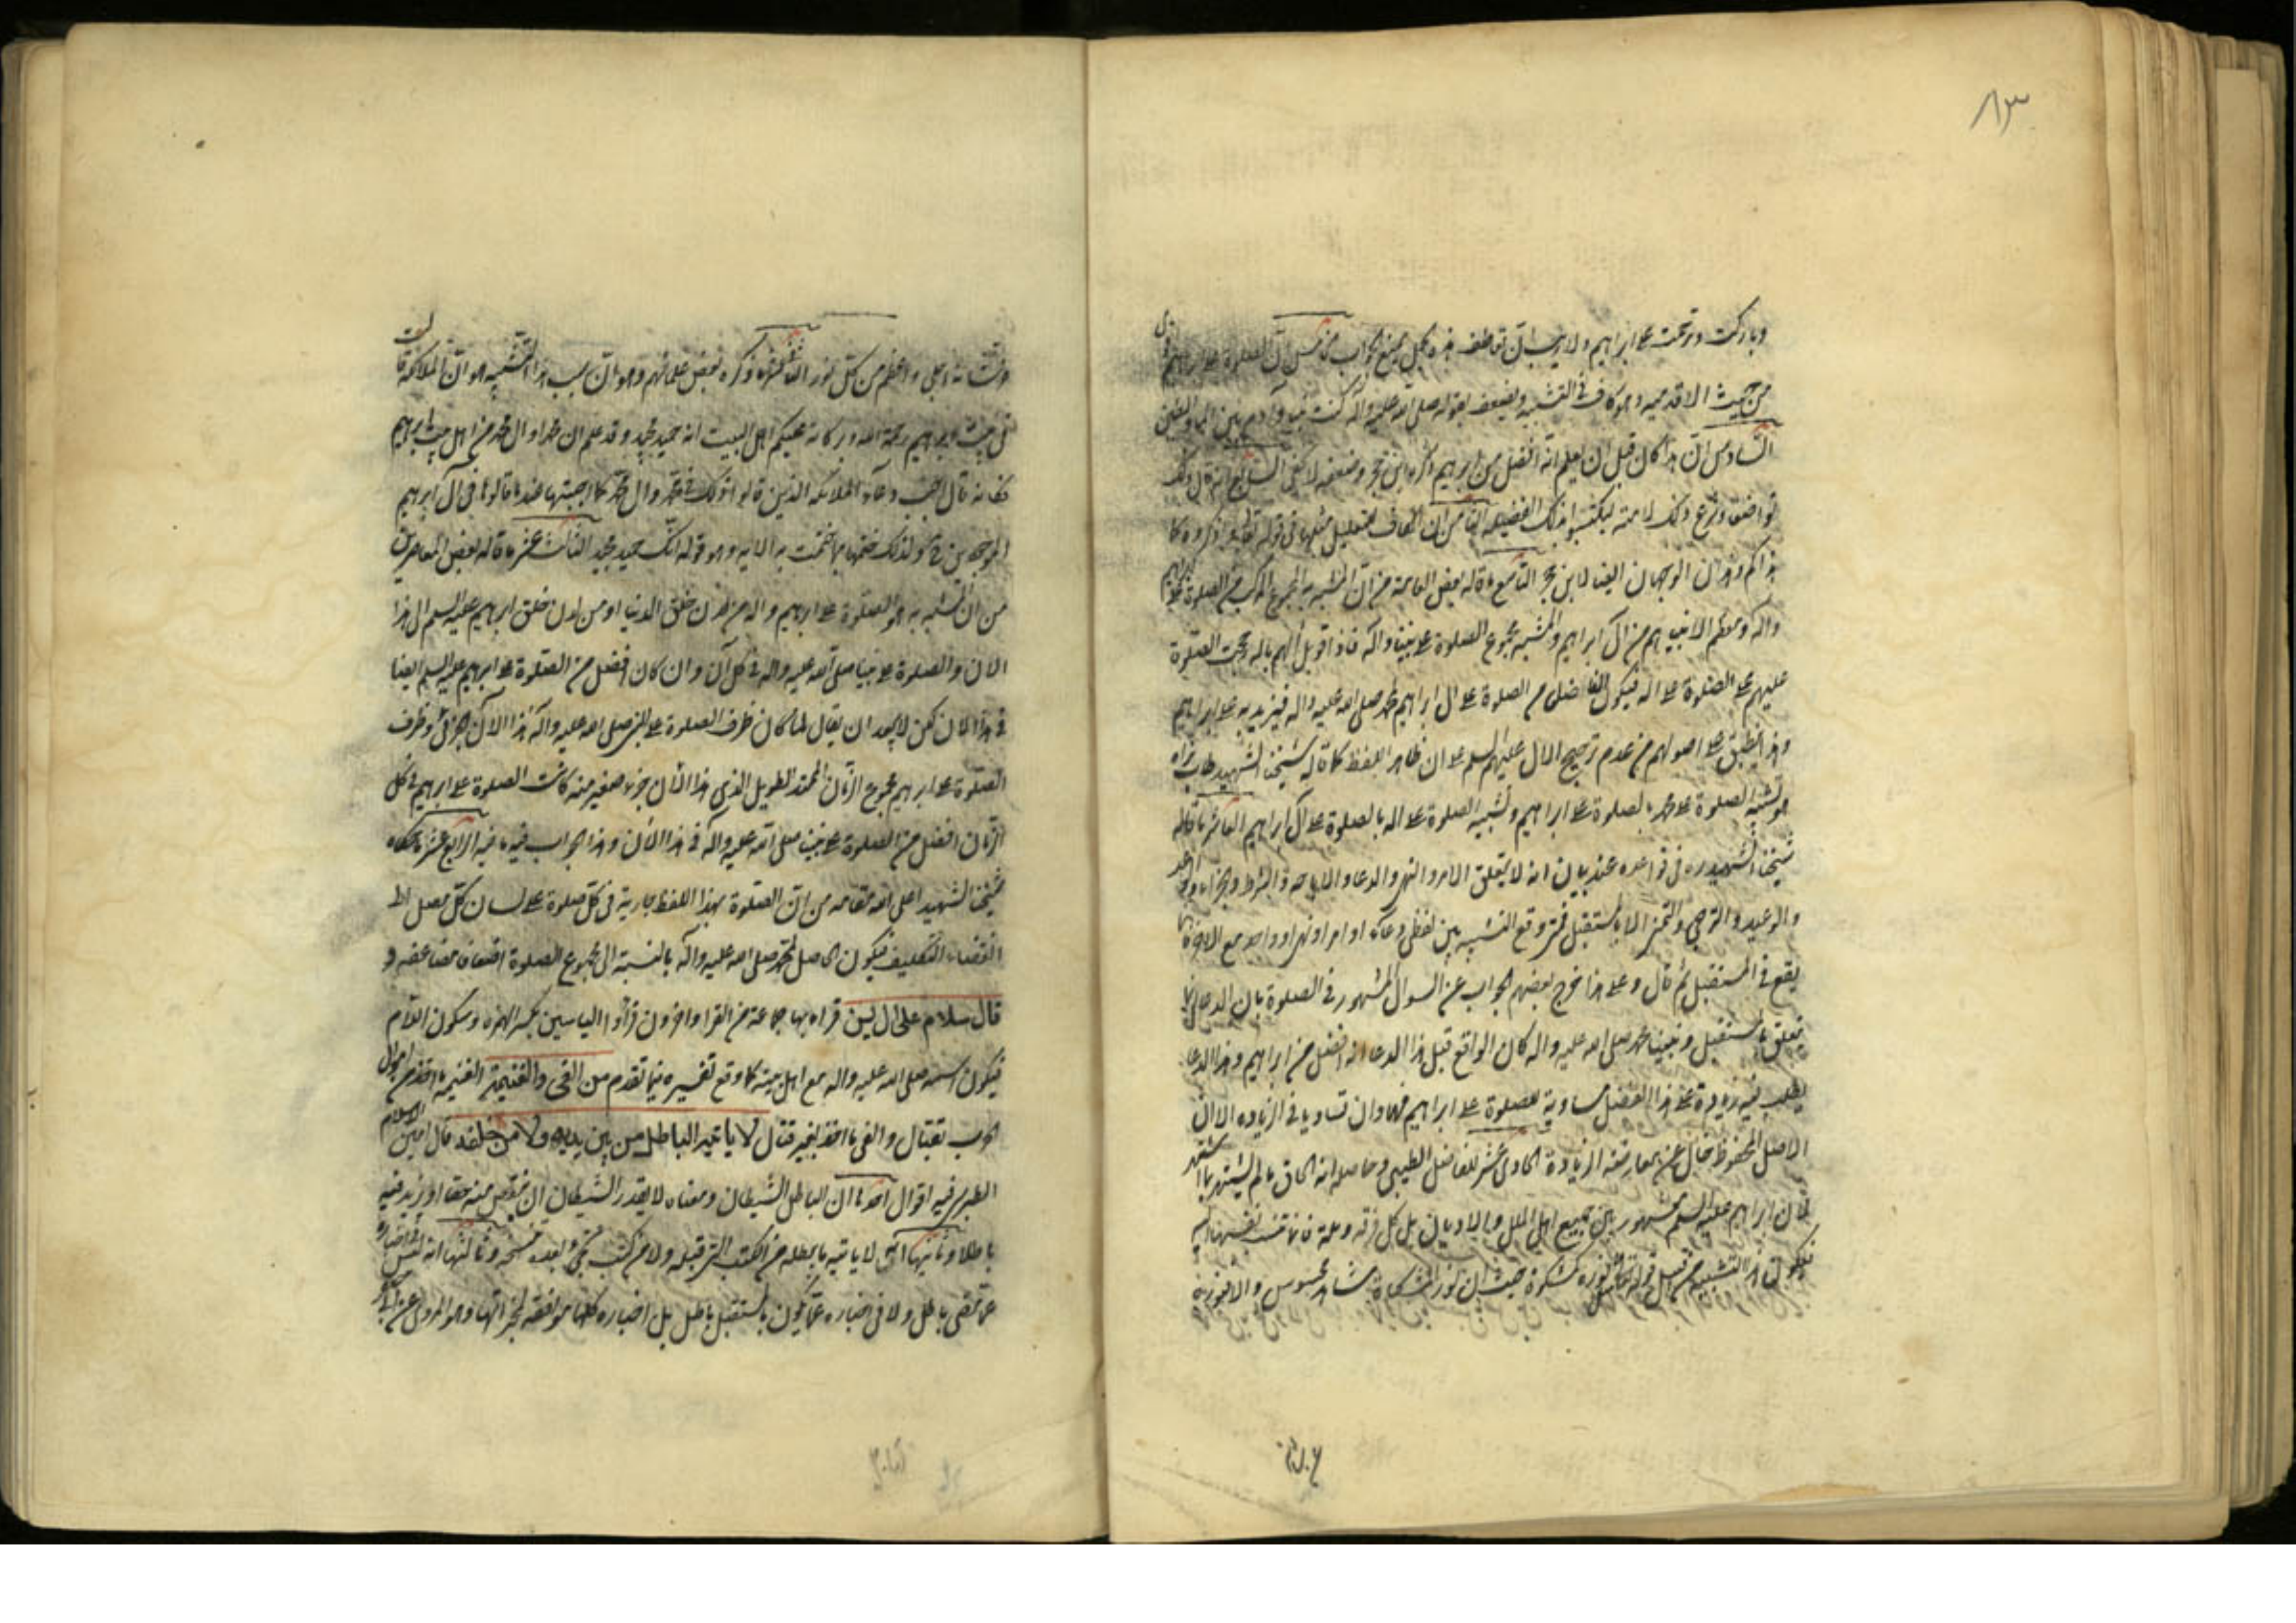 ٨٣
وباركت وترحمت على ابراهيم ولا ريب ان الصلوة على ابراهيم
من حيث الاقدمية وهو كاف في التشبيه ويضعف بقوله صلى الله عليه وآله كنت نبيا وآدم بين الماء والطين
السادس ان هذا كان قبل ان يعلم انه افضل من ابراهيم ذكره ابن حجر وضعفه لا يخفى السابع انه قال ذلك
تواضعا وشرع ذلك لامته ليكتسبوا بذلك الفضيلة الثامن ان الكاف للتعليل مثلها في قوله تعالى واذكروه كما
هداكم وهذان الوجهان ايضا لابن حجر التاسع ما قاله بعض العامة من ان المشبه به المجموع المركب من الصلوة على ابراهيم
واله ومعظم الانبياء هم من ال ابراهيم والمشبه مجموع الصلوة على نبينا واله فاذا قوبل آلهم باله رجحت الصلوة
عليهم على الصلوة على اله فيكون الفاضل من الصلوة على ال ابراهيم لمحمد صلى الله عليه واله فيزيد به على ابراهيم
وهذا ينطبق على اصولهم من عدم ترجيح الال عليهم السلم على ان ظاهر اللفظ كما قاله شيخنا الشهيد طاب ثراه
هو تشبيه الصلوة على محمد بالصلوة على ابراهيم وتشبيه الصلوة على اله بالصلوة على آل ابراهيم العاشر ما قاله
شيخنا الشهيد ره في قواعده عند بيان انه لا يتعلق الامر والنهي والدعاء والاباحة والشرط والجزاء والوعد
والوعيد والترجي والتمني الا بالمستقبل فمتى وقع التشبيه بين لفظي دعاء او امر او نهي او واحد مع الاخر فانما
يقع في المستقبل ثم قال وعلى هذا خرج بعضهم الجواب عن السوال المشهور في الصلوة بان الدعا انما
يتعلق بالمستقبل ونبينا محمد صلى الله عليه واله كان الواقع قبل هذا الدعا انه افضل من ابراهيم وهذا الدعا
يطلب فيه زيادة على هذا الفضل مساوية للصلوة على ابراهيم فهما وان تساويا في الزيادة الا ان
الاصل المحفوظ خال عن معارضة الزيادة الحادى عشر للفاضل الطيبي وحاصله انه الحاق ما لم يشتهر بما اشتهر
لان ابراهيم عليه السلم مشهور بين جميع اهل الملل والاديان بل كل فرقة
فيكون هذا التشبيه من قبيل قوله تعالى مثل نوره كمشكوة حيث ان نور المشكاة مشاهد محسوس
وشانه اجلى واعظم من كل نور الثانى عشر ما ذكره بعض علمائهم وهو ان سبب هذا التشبيه هو ان الملائكة قالت
في بيت ابراهيم رحمة الله وبركاته عليكم اهل البيت انه حميد مجيد وقد علم ان محمدا وال محمد من اهل بيت ابراهيم
فكانه قال اجب دعاء الملائكة الذين قالوا ذلك في محمد وال محمد كما اجبتها عندما قالوها في آل ابراهيم
الموجودين ح ولذلك ختمها بما ختمت به الاية وهو قوله انك حميد مجيد الثالث عشر ما قاله بعض المعاصرين
من ان المشبه به هو الصلوة على ابراهيم واله من لدن خلق الدنيا او من لدن خلق ابراهيم عليه السلم الى هذا
الان والصلوة على نبينا صلى الله عليه واله في كل آن وان كان افضل من الصلوة على ابراهيم عليه السلم ايضا
في هذا الان لكن لا يبعد ان يقال لما كان ظرف الصلوة على النبي صلى الله عليه وآله هذا الان الجزئي وظرف
الصلوة على ابراهيم مجموع الزمان الممتد الطويل الذي هذا الان جزء صغير منه كانت الصلوة على ابراهيم في كل
الزمان افضل من الصلوة على نبينا صلى الله عليه وآله في هذا الان وهذا الجواب فيه ما فيه الرابع عشر ما حكاه
شيخنا الشهيد اعلى الله مقامه من ان الصلوة بهذا اللفظ جارية في كل صلوة على لسان كل مصل الى
انقضاء التكليف فيكون الحاصل لمحمد صلى الله عليه وآله بالنسبة الى مجموع الصلوة اضعافا مضاعفه و
قال سلام على ال يس قراه بها جماعة من القرا واخرون قرأوا الياسين بكسر الهمزه وسكون اللام
فيكون اسمه صلى الله عليه واله مع اهل بيته كما وقع تفسيره فيما تقدم من الفئ والغنيمة الغنيمة ما اخذ من اموال
الحرب بقتال والفئ ما اخذ بغير قتال لا ياتيه الباطل من بين يديه ولا من خلفه قال امين الاسلام
الطبرسي فيه اقوال احدها ان الباطل الشيطان ومعناه لا يقدر الشيطان ان ينقص منه حقا او يزيد فيه
باطلا وثانيها انه لا ياتيه ما يبطله من الكتب التي قبله ولا من كتب تجئ بعده تنسخه وثالثها انه ليس في اخباره
عما مضى باطل ولا في اخباره عما يكون بالمستقبل باطل بل اخباره كلها موافقة لمخبراتها وهو المروى عن